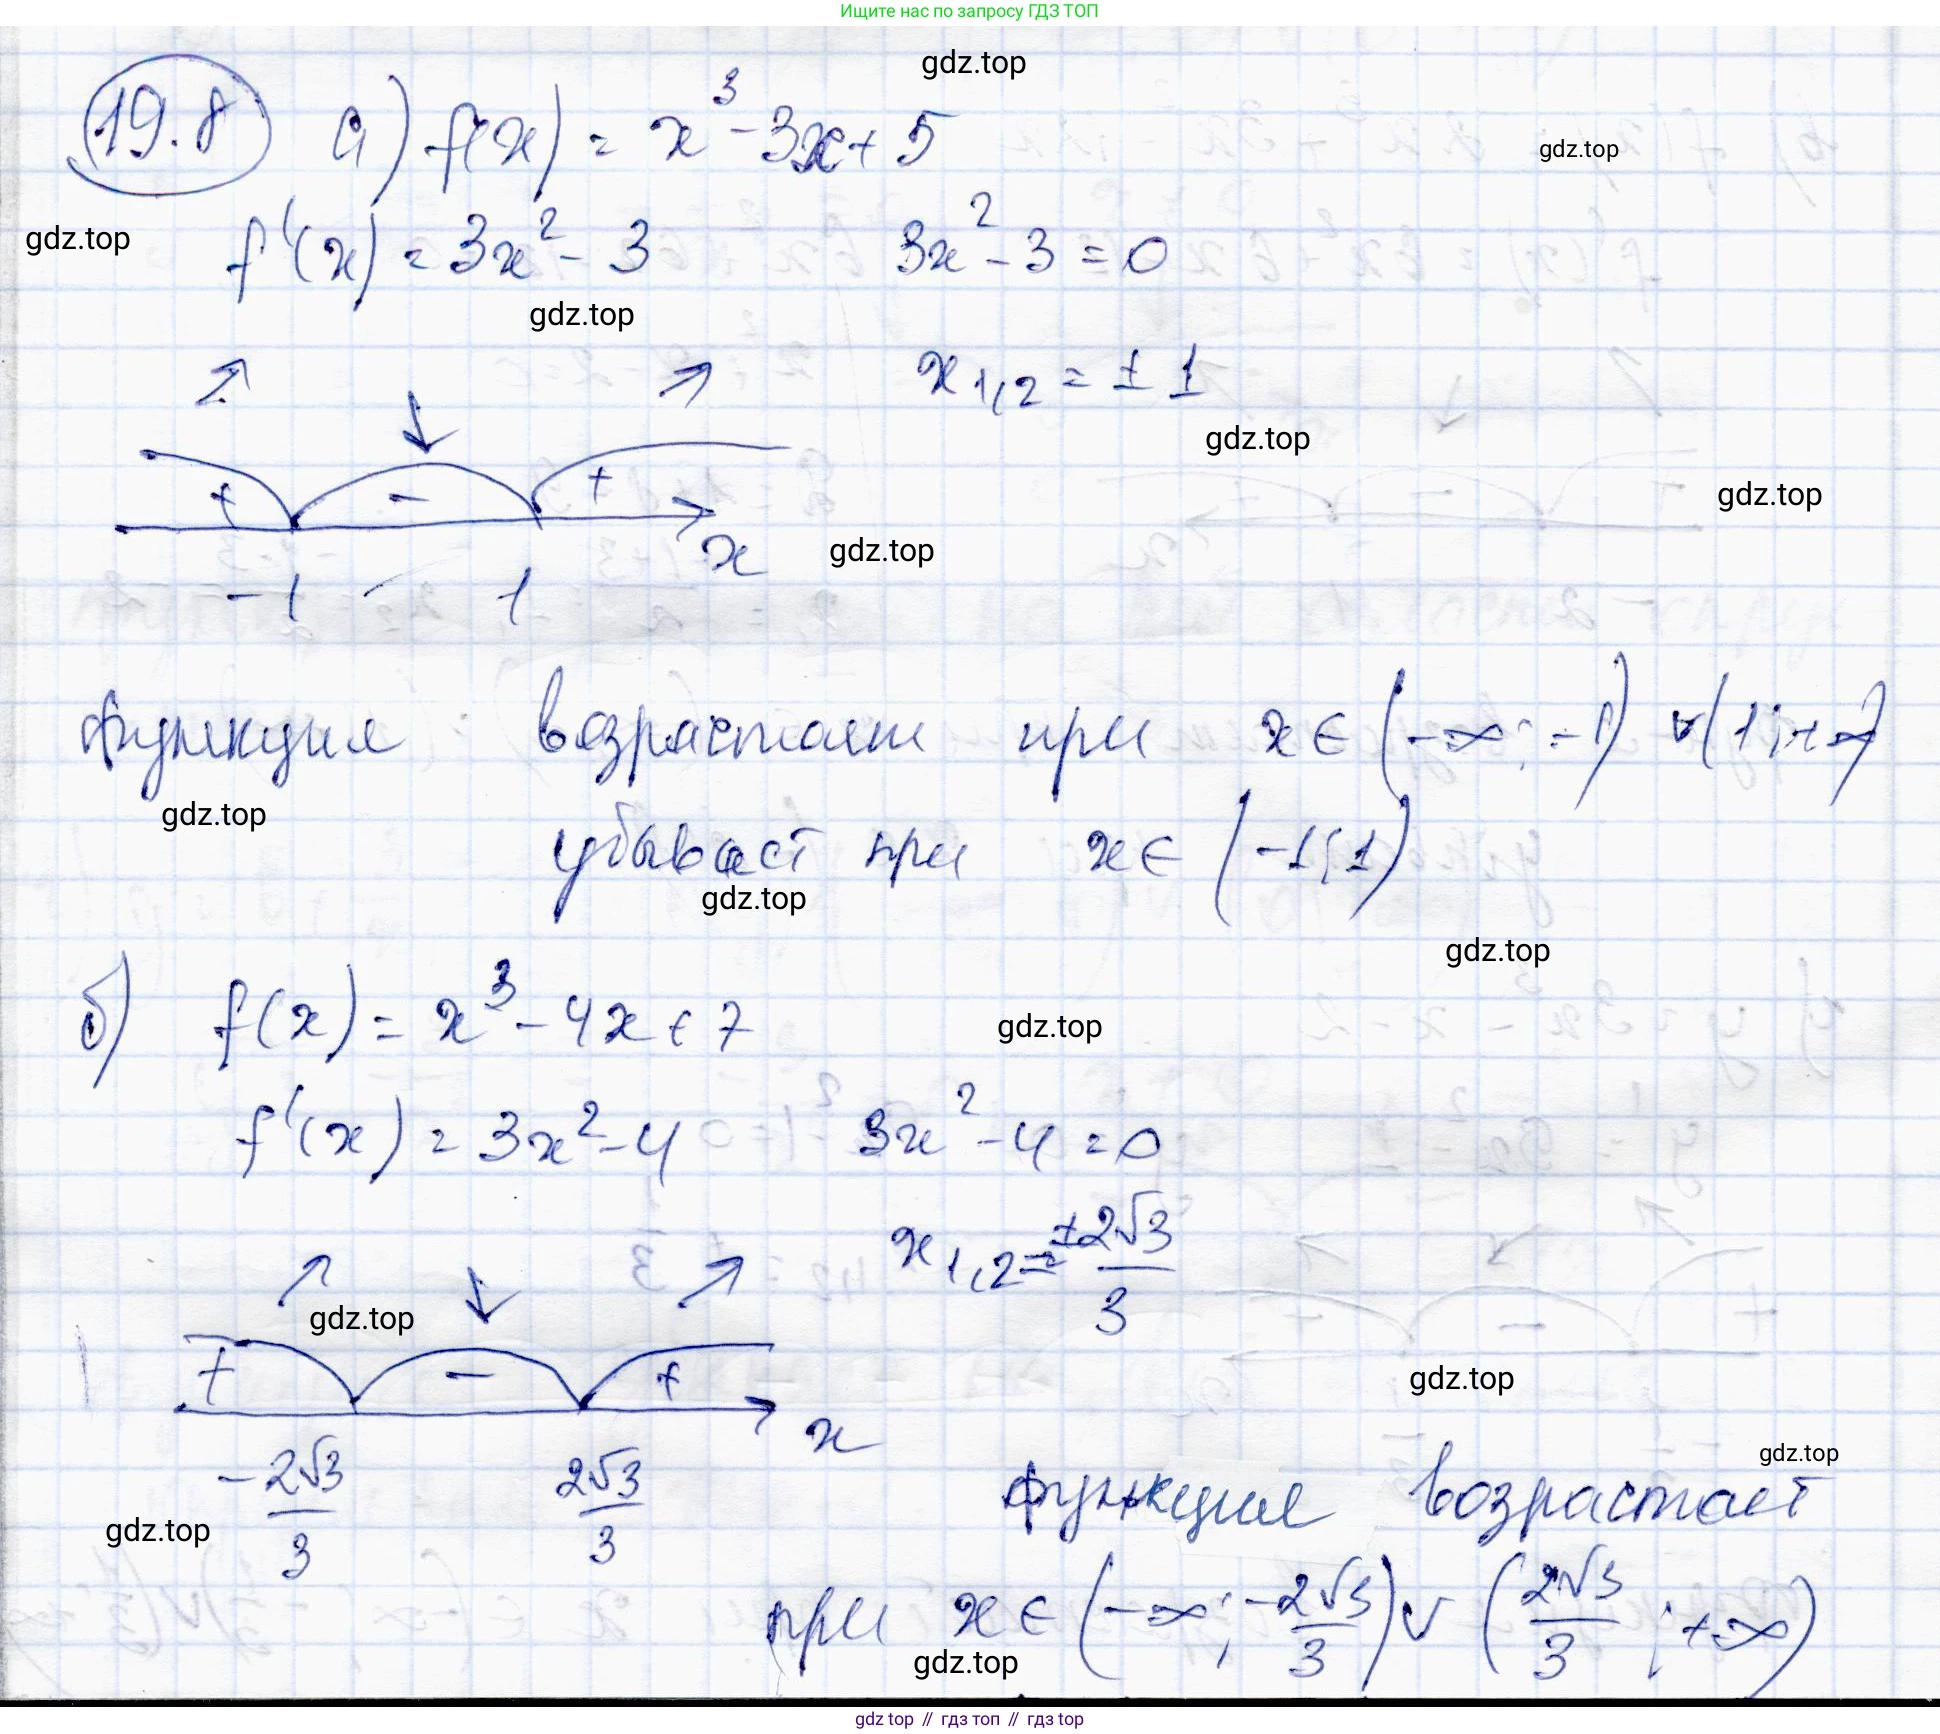 Ищите нас по запросу ГДЗ ТОП
gdz.top
19.8 а) f(x) = x³ - 3x + 5
gdz.top
gdz.top
f'(x) = 3x² - 3 3x² - 3 = 0
gdz.top
x₁,₂ = ± 1
gdz.top
+ - +
gdz.top
x
gdz.top
-1 1
функция возрастает при x ∈ (-∞; -1) ∨ (1; +∞)
gdz.top
убывает при x ∈ (-1; 1)
gdz.top
gdz.top
б) f(x) = x³ - 4x + 7
gdz.top
f'(x) = 3x² - 4 3x² - 4 = 0
x₁,₂ = ±2√3/3
gdz.top
+ - +
gdz.top
x
-2√3/3 2√3/3
gdz.top
функция возрастает
gdz.top
при x ∈ (-∞; -2√3/3) ∨ (2√3/3; +∞)
gdz.top
gdz top // гдз топ // гдз top